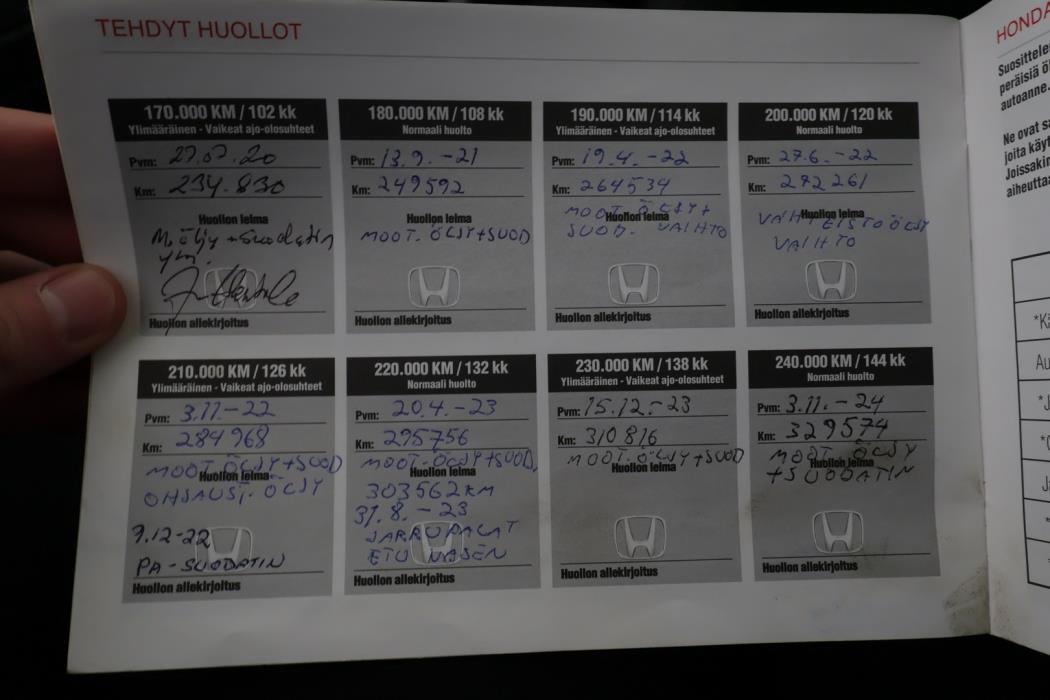 TEHDYT HUOLLOT
170.000 KM / 102 kk
Ylimääräinen - Vaikeat ajo-olosuhteet
Pvm: 27.07.20
Km: 234.830
Huollon leima
Möljy + suodatin
ym.
Huollon allekirjoitus
180.000 KM / 108 kk
Normaali huolto
Pvm: 13.9.-21
Km: 249592
Huollon leima
MOOT. ÖLJY+SUOD
Huollon allekirjoitus
190.000 KM / 114 kk
Ylimääräinen - Vaikeat ajo-olosuhteet
Pvm: 19.4.-22
Km: 264534
MOOT. ÖLJY+
Huollon leima
SUOD. VAIHTO
Huollon allekirjoitus
200.000 KM / 120 kk
Normaali huolto
Pvm: 27.6.-22
Km: 272261
Huollon leima
VAIHTEISTOÖLJY
VAIHTO
Huollon allekirjoitus
210.000 KM / 126 kk
Ylimääräinen - Vaikeat ajo-olosuhteet
Pvm: 3.11.-22
Km: 284968
MOOT. ÖLJY+SUOD
Huollon leima
OHJAUST. ÖLJY
9.12-22
PA-SUODATIN
Huollon allekirjoitus
220.000 KM / 132 kk
Normaali huolto
Pvm: 20.4.-23
Km: 295756
MOOT. ÖLJY+SUOD,
Huollon leima
303562KM
31.8.-23
JARRUPALAT
ETU
Huollon allekirjoitus
230.000 KM / 138 kk
Ylimääräinen - Vaikeat ajo-olosuhteet
Pvm: 15.12.-23
Km: 310816
MOOT. ÖLJY+SUOD
Huollon leima
Huollon allekirjoitus
240.000 KM / 144 kk
Normaali huolto
Pvm: 3.11.-24
Km: 329574
MOOT. ÖLJY
Huollon leima
+SUODATIN
Huollon allekirjoitus
HONDA
peräisiä
autoanne.
Ne ovat
joita
Joissakin